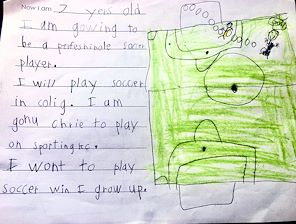 Now I am 7 yers old
I am gowing to
be a perfeshinole soccer
player.
I will play soccer
in colig. I am
gonu chrie to play
on sporting kc.
I wont to play
soccer win I grow up.